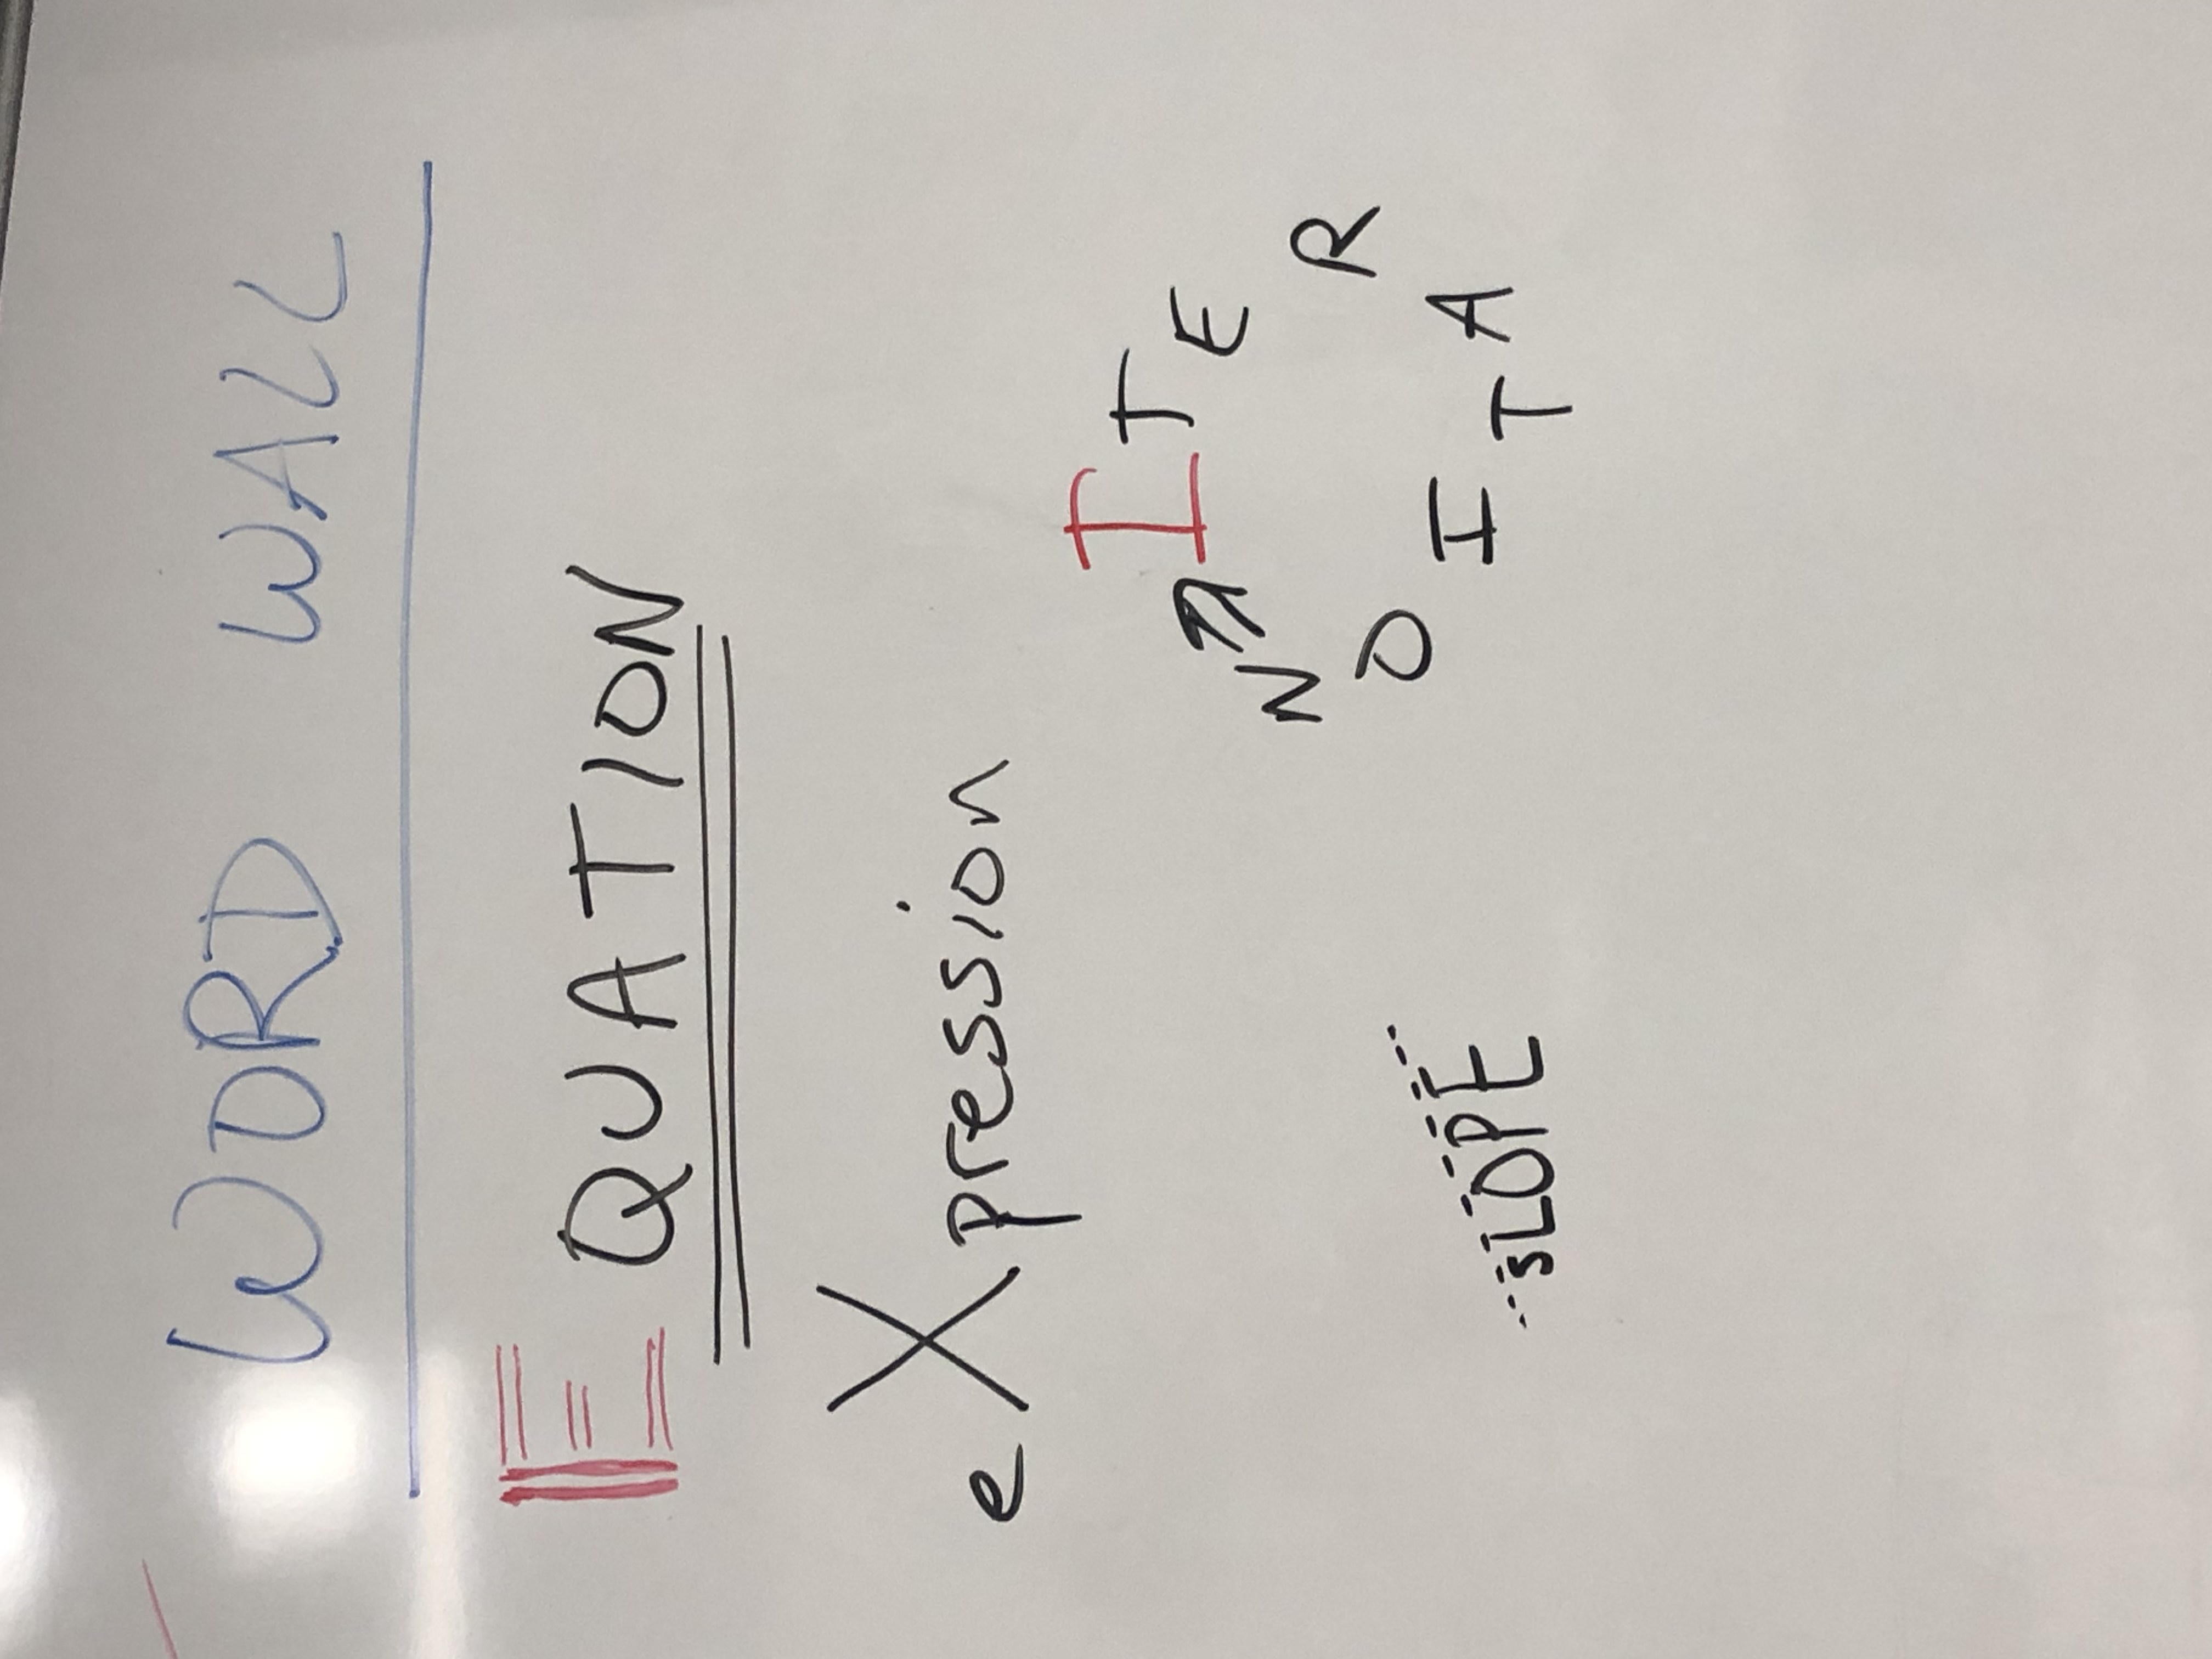 WORD WALL
EQUATION
eXpression
ITERATION
sLOPE